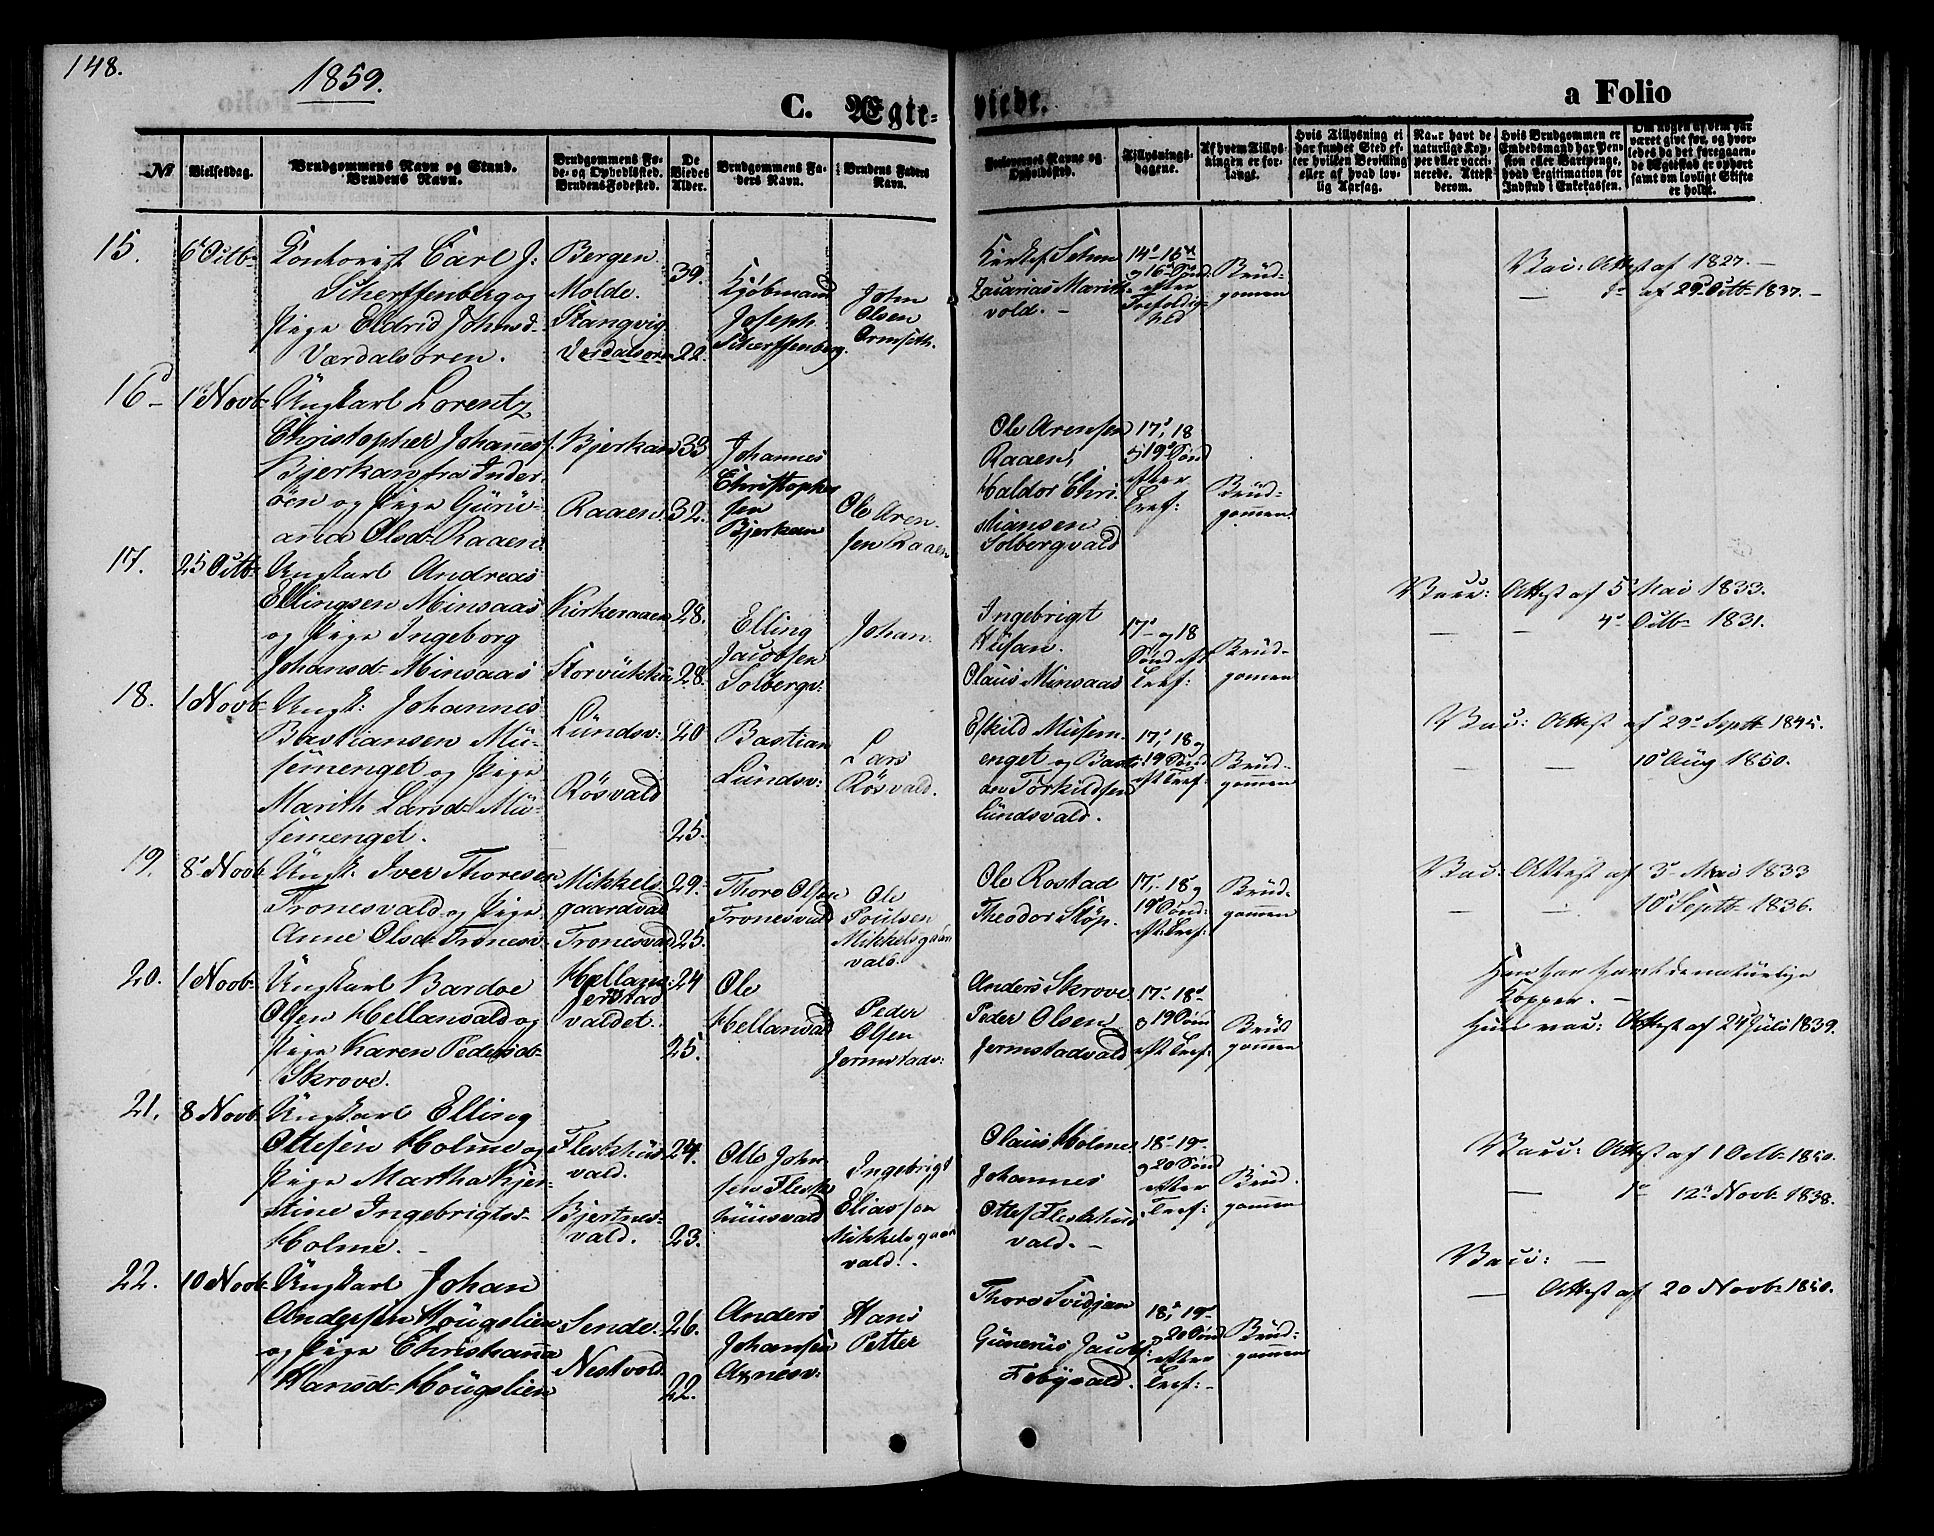 148.
1859.
C. Ægte-
viede.
a Folio
№
Vielsesdag.
Brudgommens Navn og Stand.
Brudens Navn.
Brudgommens Fø-
de- og Opholdssted.
Brudens Fødested.
De
Viedes
Alder.
Brudgommens Fa-
ders Navn.
Brudens Faders
Navn.
Forlovernes Navne og
Opholdssted.
Tillysnings-
dagene.
Af hvem Tillys-
ningen er for-
langt.
Hvis Tillysning ei
har fundet Sted ef-
ter hvilken Bevilling
eller af hvad lov-
lig Aarsag.
Naar havt de
naturlige Kop-
per eller vacci-
nerede. Attest
derom.
Hvis Brudgommen er
Embedsmand har Pen-
sion eller Vartpenge,
hvad Legitimation for
Indskud i Enkekassen.
Om nogen af dem har
været gift før, og hvor-
ledes da det foregaaen-
de Ægteskab er ophørt
samt om lovligt Skifte
er holdt.
15.
6 Octb
Contorist Carl J:
Scherffenberg og
Pige Eldrid Johnsd-
Værdalsøren.
Bergen
Molde.
Stangvig
Verdalsøren
39.
22.
Kjøbmand
Joseph
Scherffenberg.
John
Olsen
Ormseth.
Kirkes. Selmer
Zacarias Maritt-
vold. -
14de 15de
og 16 Sønd:
efter
Trefoldig-
hed
Brud-
gomen
Vac: Attest af 1827. -
- Do af 29 Octb 1837. -
16
1 Novb
Ungkarl Lorentz
Christopher Johanes f.
Bjerkan fra Inder-
øen og Pige Guru-
anna Olsd- Raaen.
Bjerkan
Raaen.
33
32.
Johannes
Christopher
sen
Bjerkan
Ole Aren-
sen Raaen
Ole Arensen
Raaen,
Haldor Chri-
stiansen
Solbergvald
17, 18
og 19 Sønd
efter
Tref:
Brud-
gomen.
17.
25 Octb
Ungkarl Andreas
Ellingsen Minsaas
og Pige Ingeborg
Johansd- Minsaas
Kirkeraaen
Storvukku
28.
28.
Elling
Jacobsen
Solbergv:
Johan.
Ingebrigt
Husan.
Olaus Minsaas
17 og 18
Sønd eft
Tref:
Brud-
gomen
Vacc: Attest af 5 Mai 1833.
- - 4 Octb 1831.
18.
1 Novb
Ungk: Johannes
Bastiansen Mu-
semenget og Pige
Marith Larsd- Mu-
semenget.
Lundsv:
Røsvald
20
25.
Bastian
Lundsv:
Lars
Røsvald.
Eskild Musem-
enget og
Torkildsen
Lundsvald.
17, 18 og
19 Sønd
eft Tref:
Brud-
gomen
Vac: Attest af 29 Septb 1845.
- - 10 Aug 1850.
19.
8 Novb
Ungk: Iver Thoresen
Tronesvald og Pige
Anne Olsd- Tronesv-
Mikkels-
gaardvald
Tronesvald
29.
25.
Thore Olsen
Tronesvald
Ole
Poulsen
Mikkelsgaar
vald.
Ole Rostad
Theodor Støp.
17, 18 og
19 Sønd:
eft: Tref:
Brud-
gomen
Vac: Attest af 3 Mai 1833
- - 10 Septb 1836.
20.
1 Novb
Ungkarl Bardoe
Olsen Hellansvald og
Pige Karen Pedersd-
Skrove.
Hellans
Jermstad
valdet.
24
25.
Ole
Hellanvald
Peder
Olsen
Jermstadv:
Anders Skrove
Peder Olsen
Jermstadvald
17- 18
og 19 Sønd
eft Tref:
Brud
gomen
Han har havt de naturlige
Kopper. -
Hun vac: Attest af 24 Juli 1839.
21.
8 Novb
Ungkarl Elling
Ottesen Holme og
Pige Martha Kjer-
stine Ingebrigtsd-
Holme. -
Fleskhus-
vald.
Bjertnes-
vald.
24.
23.
Otte John-
sen Flesk-
huusvald
Ingebrigt
Eliassen
Mikkelsgaar
vald.
Olaus Holme
Johannes
Ottes. Fleskhus
vald. -
18- 19
og 20 Sønd
efter
Tref:
Brud-
gomen
Vacc: Attest af 1 Octb 1850.
- Do 12 Novb 1838.
22.
10 Novb
Ungkarl Johan
Andersen Hougslien
og Pige Christianna
Hansd- Hougslien
Sende.
Nestvold.
26.
22.
Anders
Johansen
Arnesv:
Hans
Petter
Thore Svidjan
Gunerius Jacobs:
Febyvald.
18, 19
20 Sønd
efter
Tref:
Brud-
gomen
Vacc: -
- Attest af 20 Novb 1850.